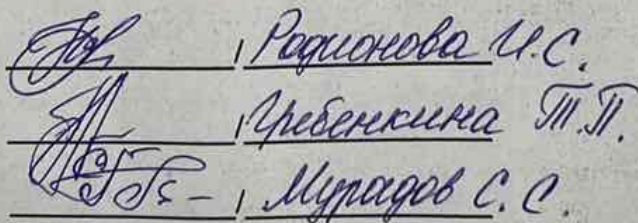 / Родионова И.С.
/ Гребенкина Т.П.
/ Мурадов С.С.